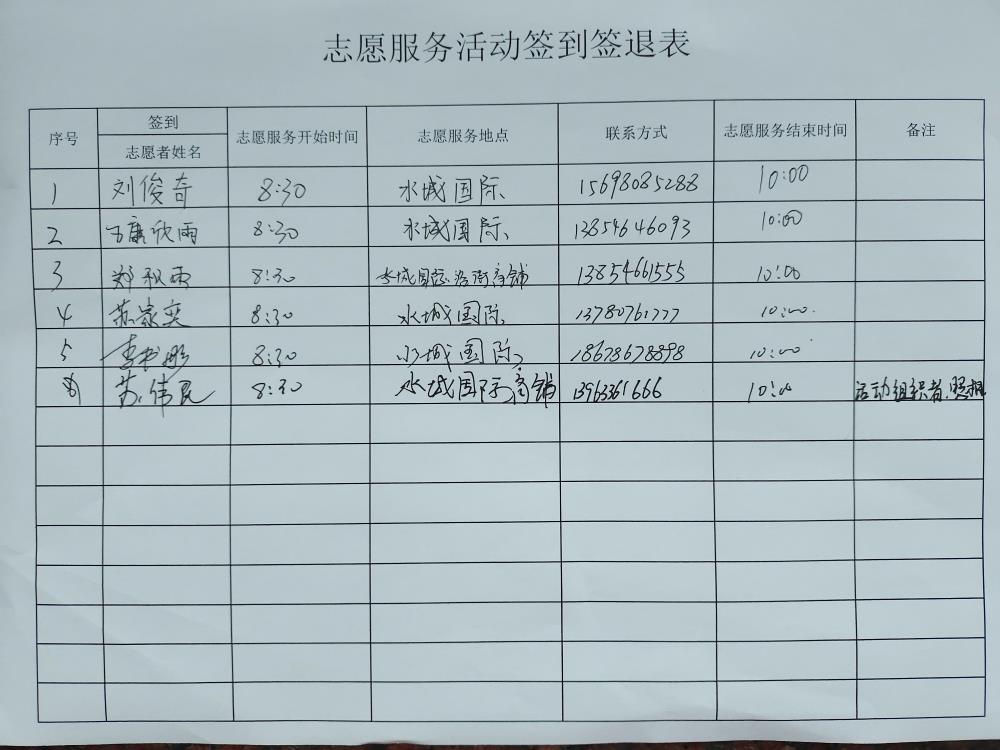 志愿服务活动签到签退表
序号 签到 志愿服务开始时间 志愿服务地点 联系方式 志愿服务结束时间 备注
志愿者姓名
1 刘俊奇 8:30 水城国际 15698085288 10:00
2 康欣雨 8:30 水城国际 13854646093 10:00
3 郑秋雨 8:30 水城国际沿街商铺 13854661555 10:00
4 苏家奕 8:30 水城国际 13780761777 10:00
5 李书彤 8:30 水城国际 18678678898 10:00
苏伟民 8:30 水城国际商铺 13963361666 10:00 活动组织者、照相